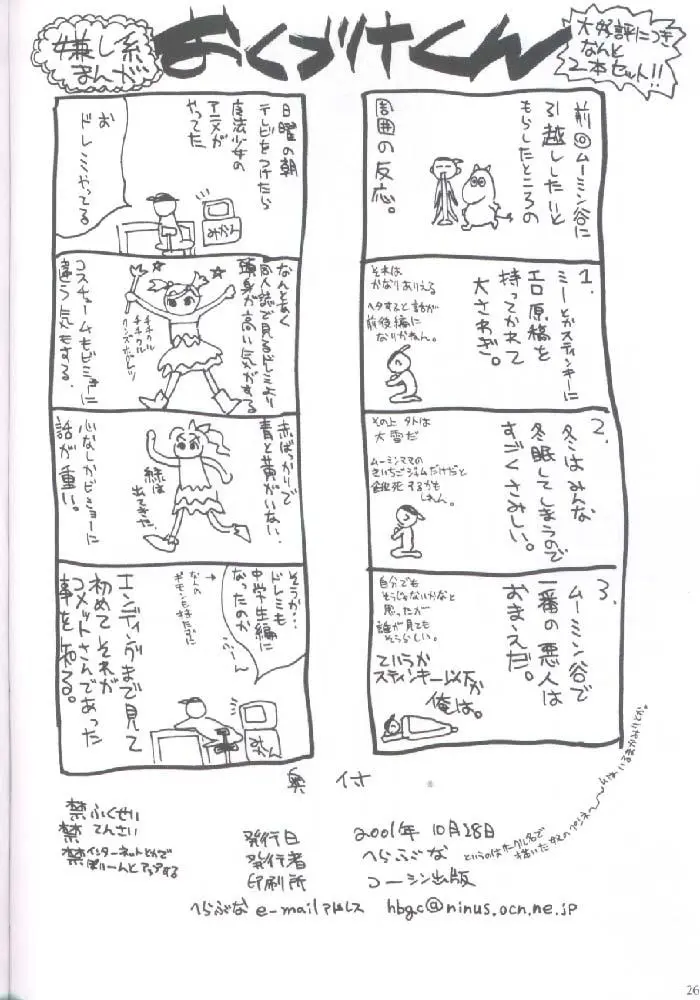 嫌し系
まんが
おくづけくん
大好評につき
なんと
2本セット!!
前回ムーミン谷に
引越ししたいと
もらしたところの
周囲の反応。
1.
ミーとかスティンキーに
エロ原稿を
持ってかれて
大さわぎ。
それは
かなりありえる
ヘタすると話が
前後編に
なりかねん。
2.
冬はみんな
冬眠してしまうので
すごくさみしい。
その上外は
大雪だ
ムーミンママの
きいちごジャムだけだと
餓死するかも
しれん。
3.
ムーミン谷で
一番の悪人は
おまえだ。
自分でも
そうじゃないかなと
思ったが
誰が見ても
そうらしい。
ていうか
スティンキー以下か
俺は。
日曜の朝
テレビをつけたら
魔法少女の
アニメが
やってた
お
ドレミやってる
みかん
なんとなく
同人誌で見るドレミより
頭身が高い気がする
チチクル
チチクル
コスチュームもビミョーに
違う気もする。
赤ばっかりで
青と黄がいない。
緑は
出てきた。
心なしかビミョーに
話が重い。
そうか…
ドレミも
中学生編に
なったのか
なんの
ギモンも持たずに
エンディングまで見て
初めてそれが
コメットさんであった
事を知る。
みかん
奥付
禁ふくせい
禁てんさい
禁インターネットとかで
ばりーんとアップする
発行日 2001年10月28日
発行者 へらぶな
というのはサークル名で
描いた奴のペンネーム
印刷所 コーシン出版
へらぶな e-mailアドレス hbgc@ninus.ocn.ne.jp
26